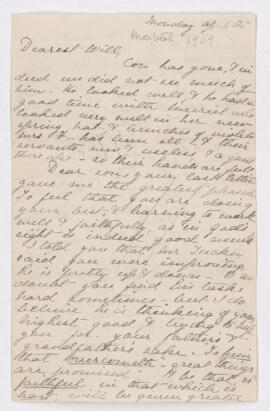 Monday
1909
Dearest Will,
has gone, & in
deed we did not see much of
him. He looked well & he had a
good time with Muriel who
looked very well in her new
spring hat & bunches of violets
Mrs has him ill & their
servants
so their hands are full
Dear son, your last letter
gave me the greatest pleasure
To feel that you are doing
your best, & learning to work
well & faithfully, as in God's
sight is indeed good news
I told you that Mr
said you were improving
he is pretty up & down
doubt you find his tasks
hard sometimes - but I do
believe he is thinking of your
highest good & trying to help
you for your father's &
grandfather's sake. To him
that overcometh great things
are promised & he that is
faithful in that which is
least, will be given greater